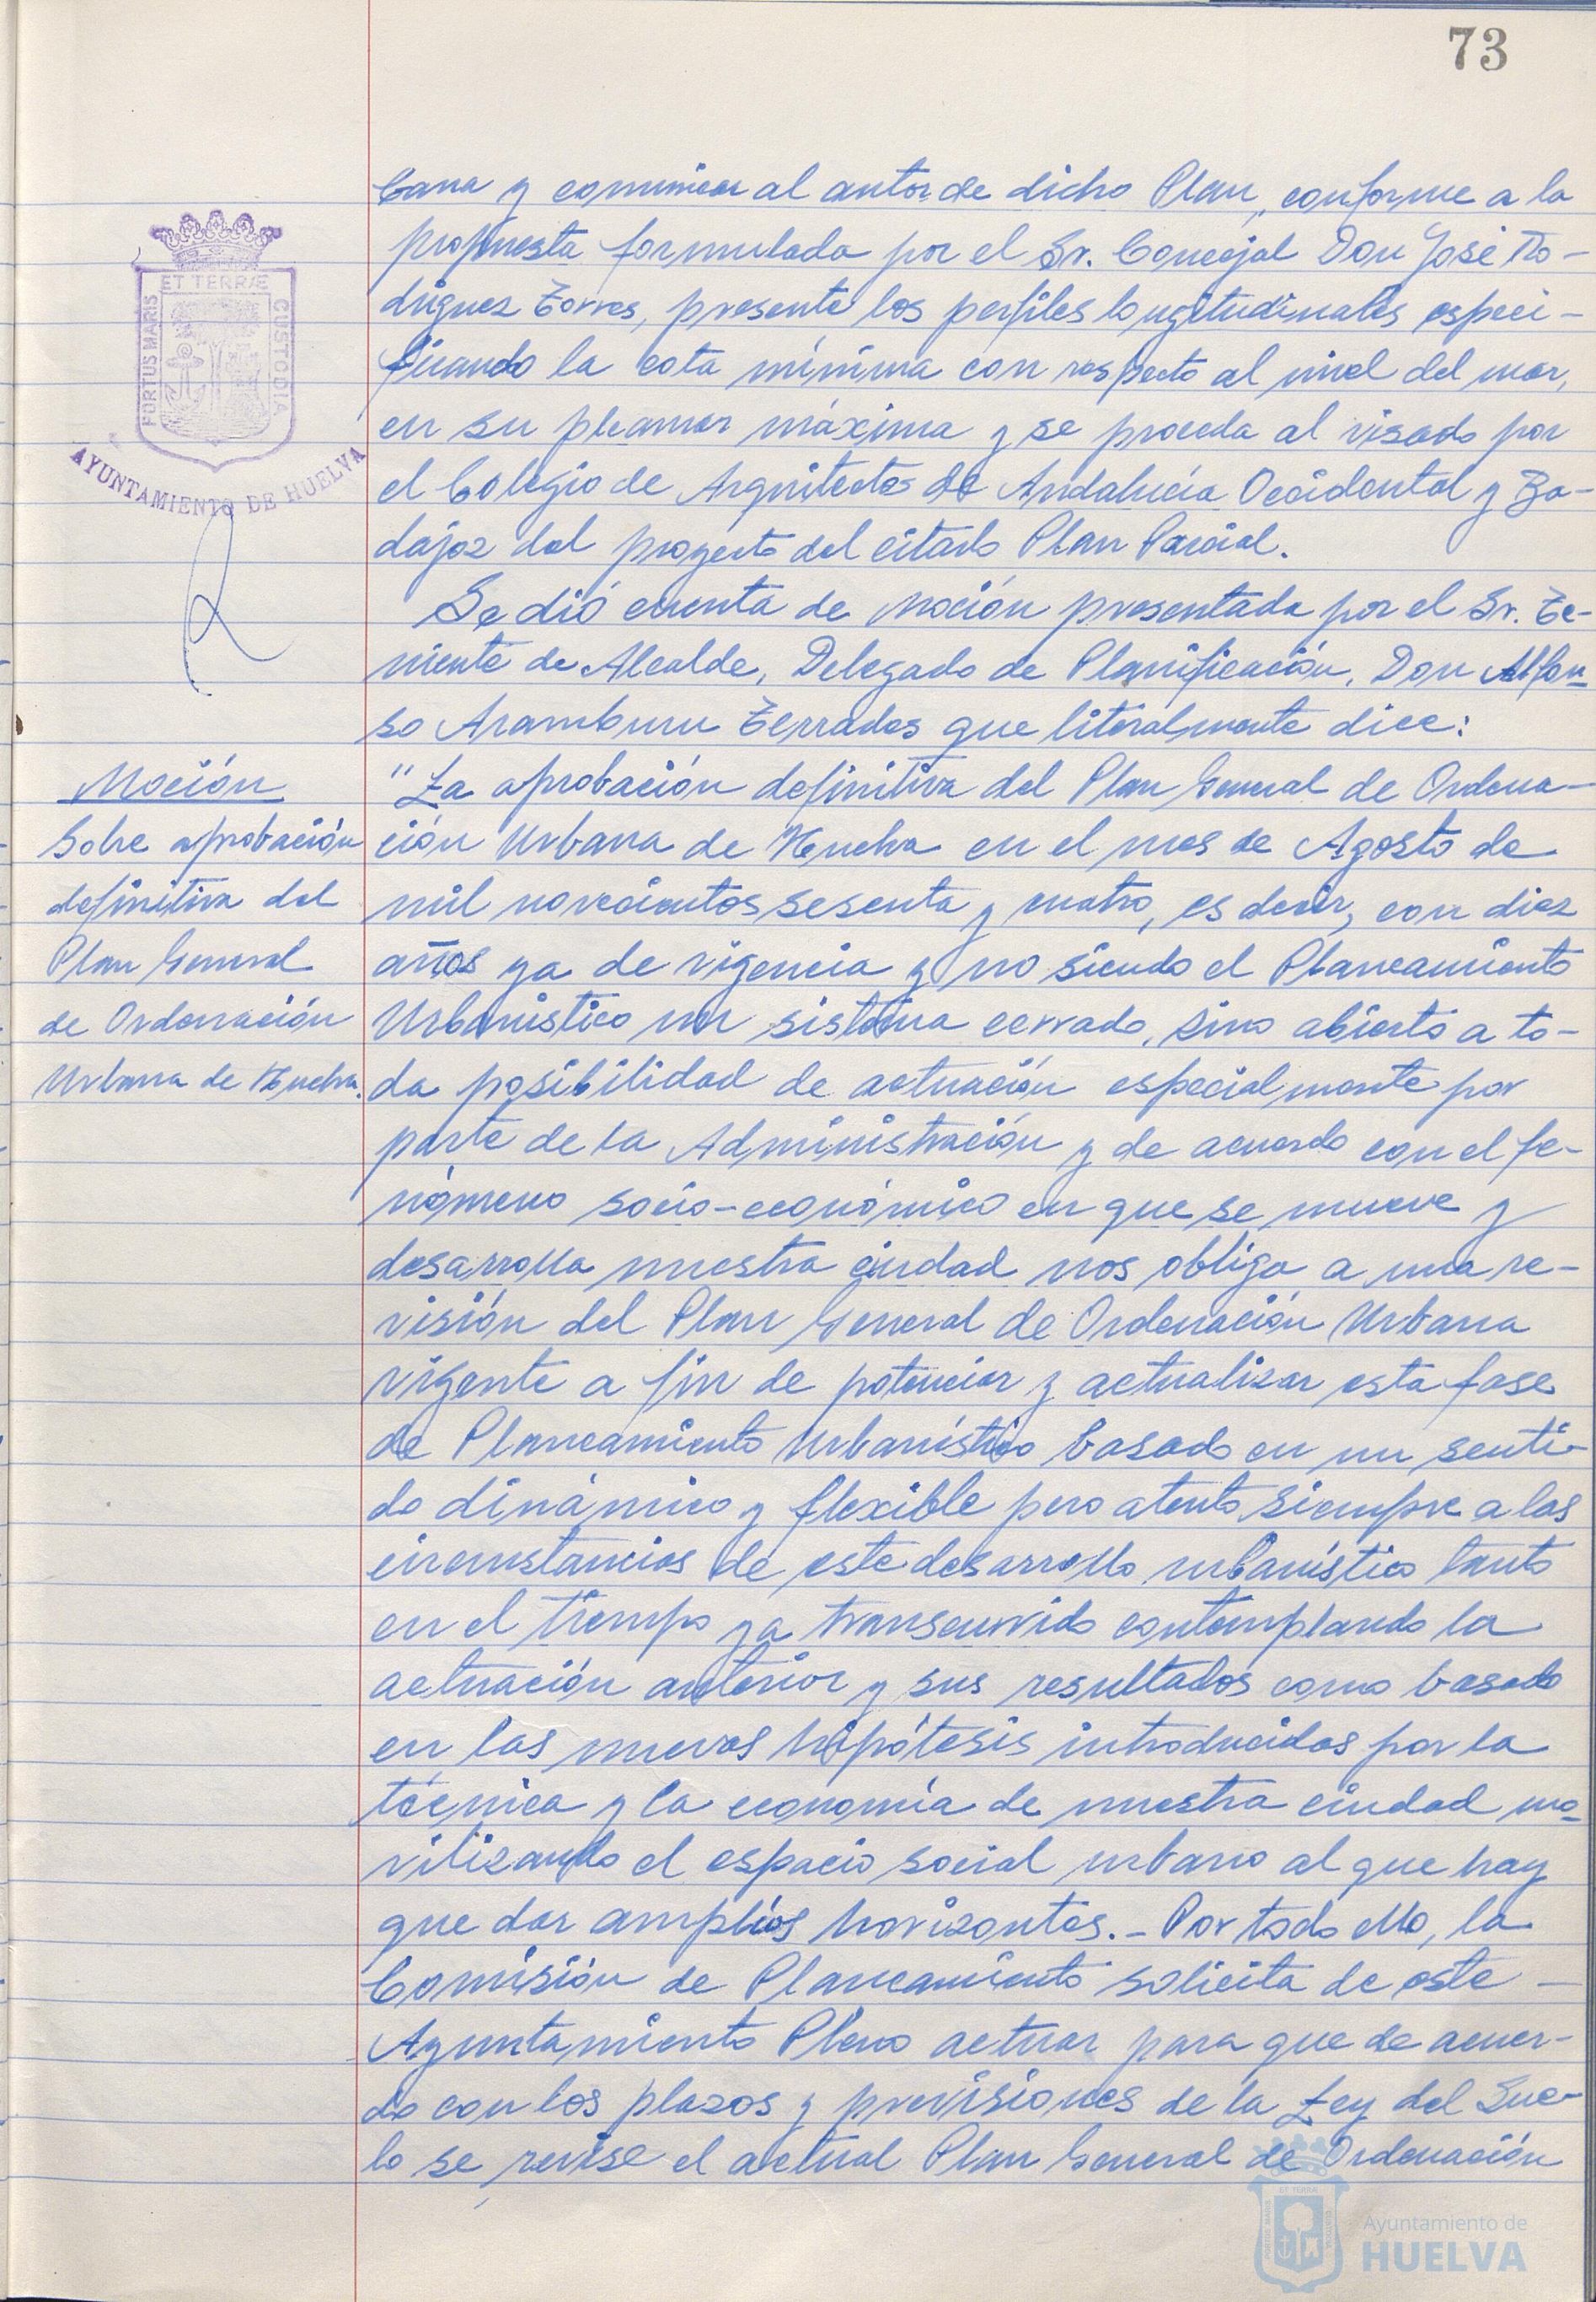 73
PORTUS MARIS
ET TERRÆ
CUSTODIA
AYUNTAMIENTO DE HUELVA
bana y comunicar al autor de dicho Plan, conforme a la
propuesta formulada por el Sr. Concejal Don José Ro-
driguez Torres, presente los perfiles longitudinales especi-
ficando la cota mínima con respecto al nivel del mar,
en su pleamar máxima y se proceda al visado por
el Colegio de Arquitectos de Andalucía Occidental y Ba-
dajoz del proyecto del citado Plan Parcial.
Se dió cuenta de moción presentada por el Sr. Te-
niente de Alcalde, Delegado de Planificación, Don Alfon-
so Aramburu Terrades que literalmente dice:
Moción
Sobre aprobación
definitiva del
Plan General
de Ordenación
Urbana de Huelva.
"La aprobación definitiva del Plan General de Ordena-
ción Urbana de Huelva en el mes de Agosto de
mil novecientos sesenta y cuatro, es decir, con diez
años ya de vigencia y no siendo el Planeamiento
Urbanístico un sistema cerrado, sino abierto a to-
da posibilidad de actuación especialmente por
parte de la Administración y de acuerdo con el fe-
nómeno socio-económico en que se mueve y
desarrolla nuestra ciudad nos obliga a una re-
visión del Plan General de Ordenación Urbana
vigente a fin de potenciar y actualizar esta fase
de Planeamiento Urbanístico basado en un senti-
do dinámico y flexible pero atento siempre a las
circunstancias de este desarrollo urbanístico tanto
en el tiempo ya transcurrido contemplando la
actuación anterior y sus resultados como basado
en las nuevas hipótesis introducidas por la
técnica y la economía de nuestra ciudad mo-
vilizando el espacio social urbano al que hay
que dar amplios horizontes.- Por todo ello, la
Comisión de Planeamiento solicita de este -
Ayuntamiento Pleno actuar para que de acuer-
do con los plazos y previsiones de la Ley del Sue-
lo se revise el actual Plan General de Ordenación
Ayuntamiento de
HUELVA